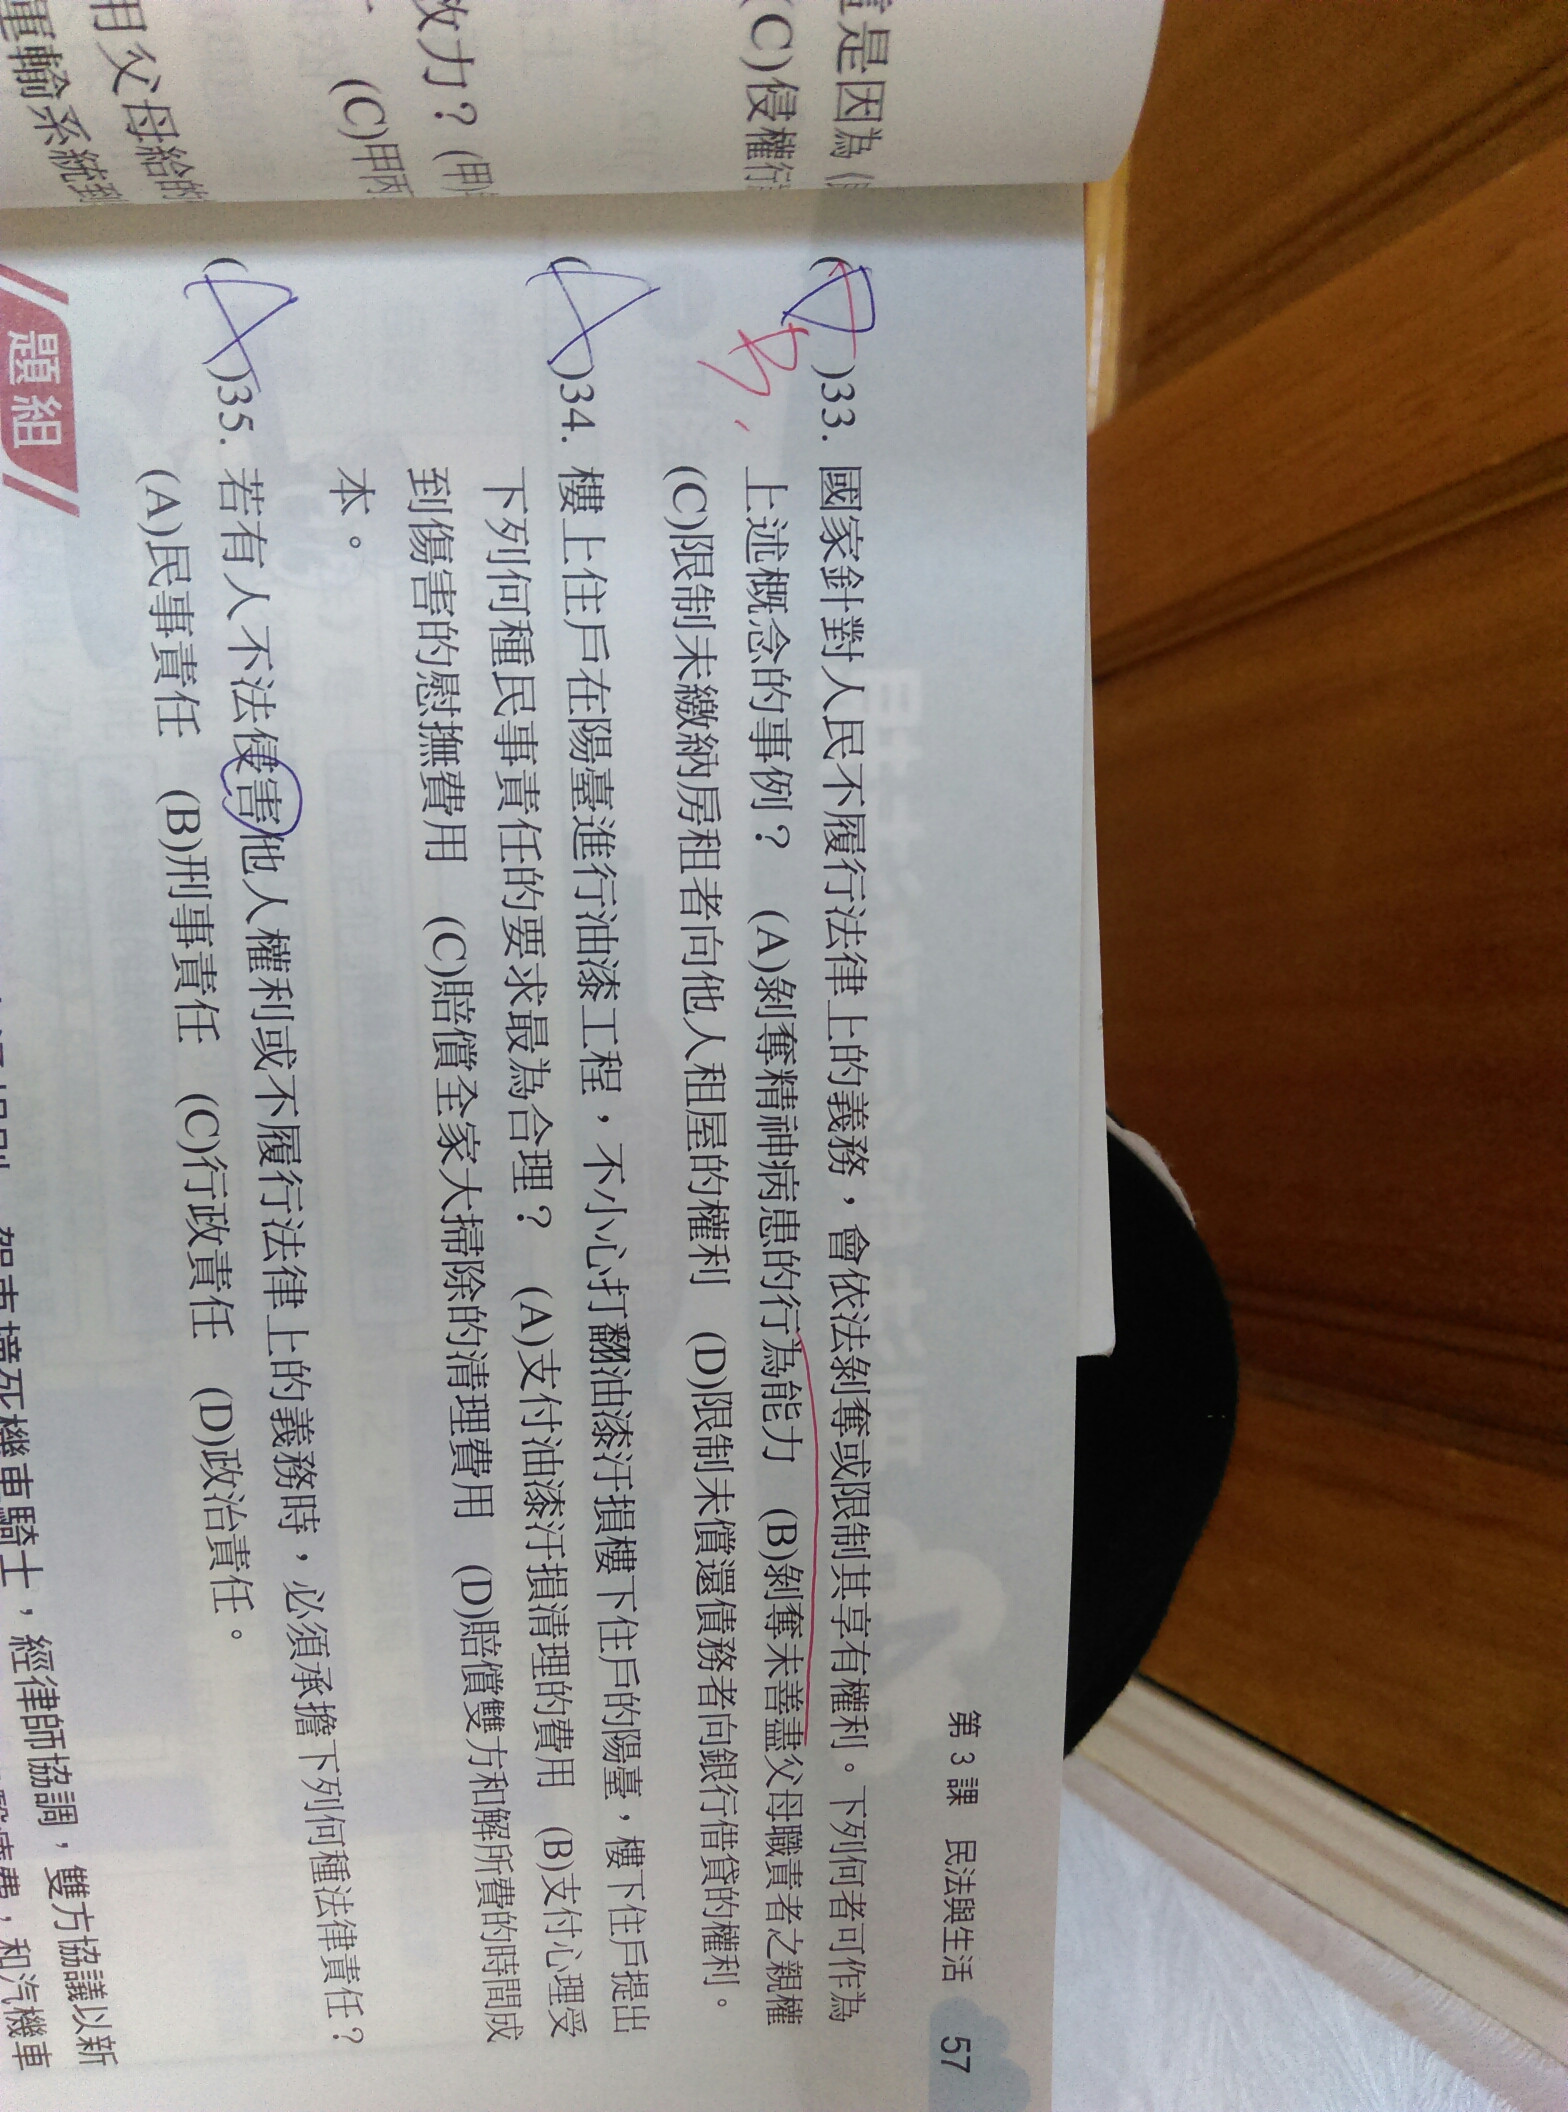 第 3 課 民法與生活 57
是因為
(C)侵權行
效力？(甲)
(C)甲丙
用父母給的
軍輸系統
(D)33. 國家針對人民不履行法律上的義務，會依法剝奪或限制其享有權利。下列何者可作為
B
上述概念的事例？ (A)剝奪精神病患的行為能力 (B)剝奪未善盡父母職責者之親權
(C)限制未繳納房租者向他人租屋的權利 (D)限制未償還債務者向銀行借貸的權利。
(A)34. 樓上住戶在陽臺進行油漆工程，不小心打翻油漆汙損樓下住戶的陽臺，樓下住戶提出
下列何種民事責任的要求最為合理？ (A)支付油漆汙損清理的費用 (B)支付心理受
到傷害的慰撫費用 (C)賠償全家大掃除的清理費用 (D)賠償雙方和解所費的時間成
本。
(A)35. 若有人不法侵害他人權利或不履行法律上的義務時，必須承擔下列何種法律責任？
(A)民事責任 (B)刑事責任 (C)行政責任 (D)政治責任。
題組
駕車撞死機車騎士，經律師協調，雙方協議以新
醫療費，和汽機車